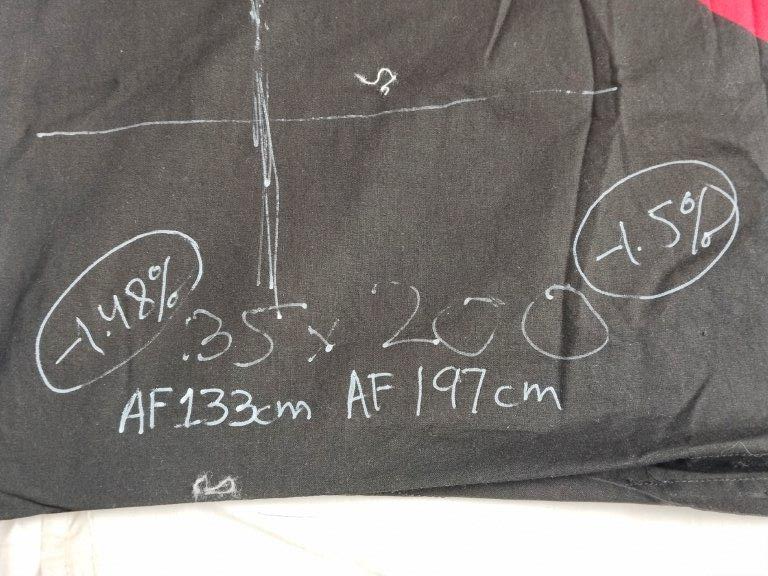 -1.5%
-1.48%
35 x 200
AF 133cm AF 197cm